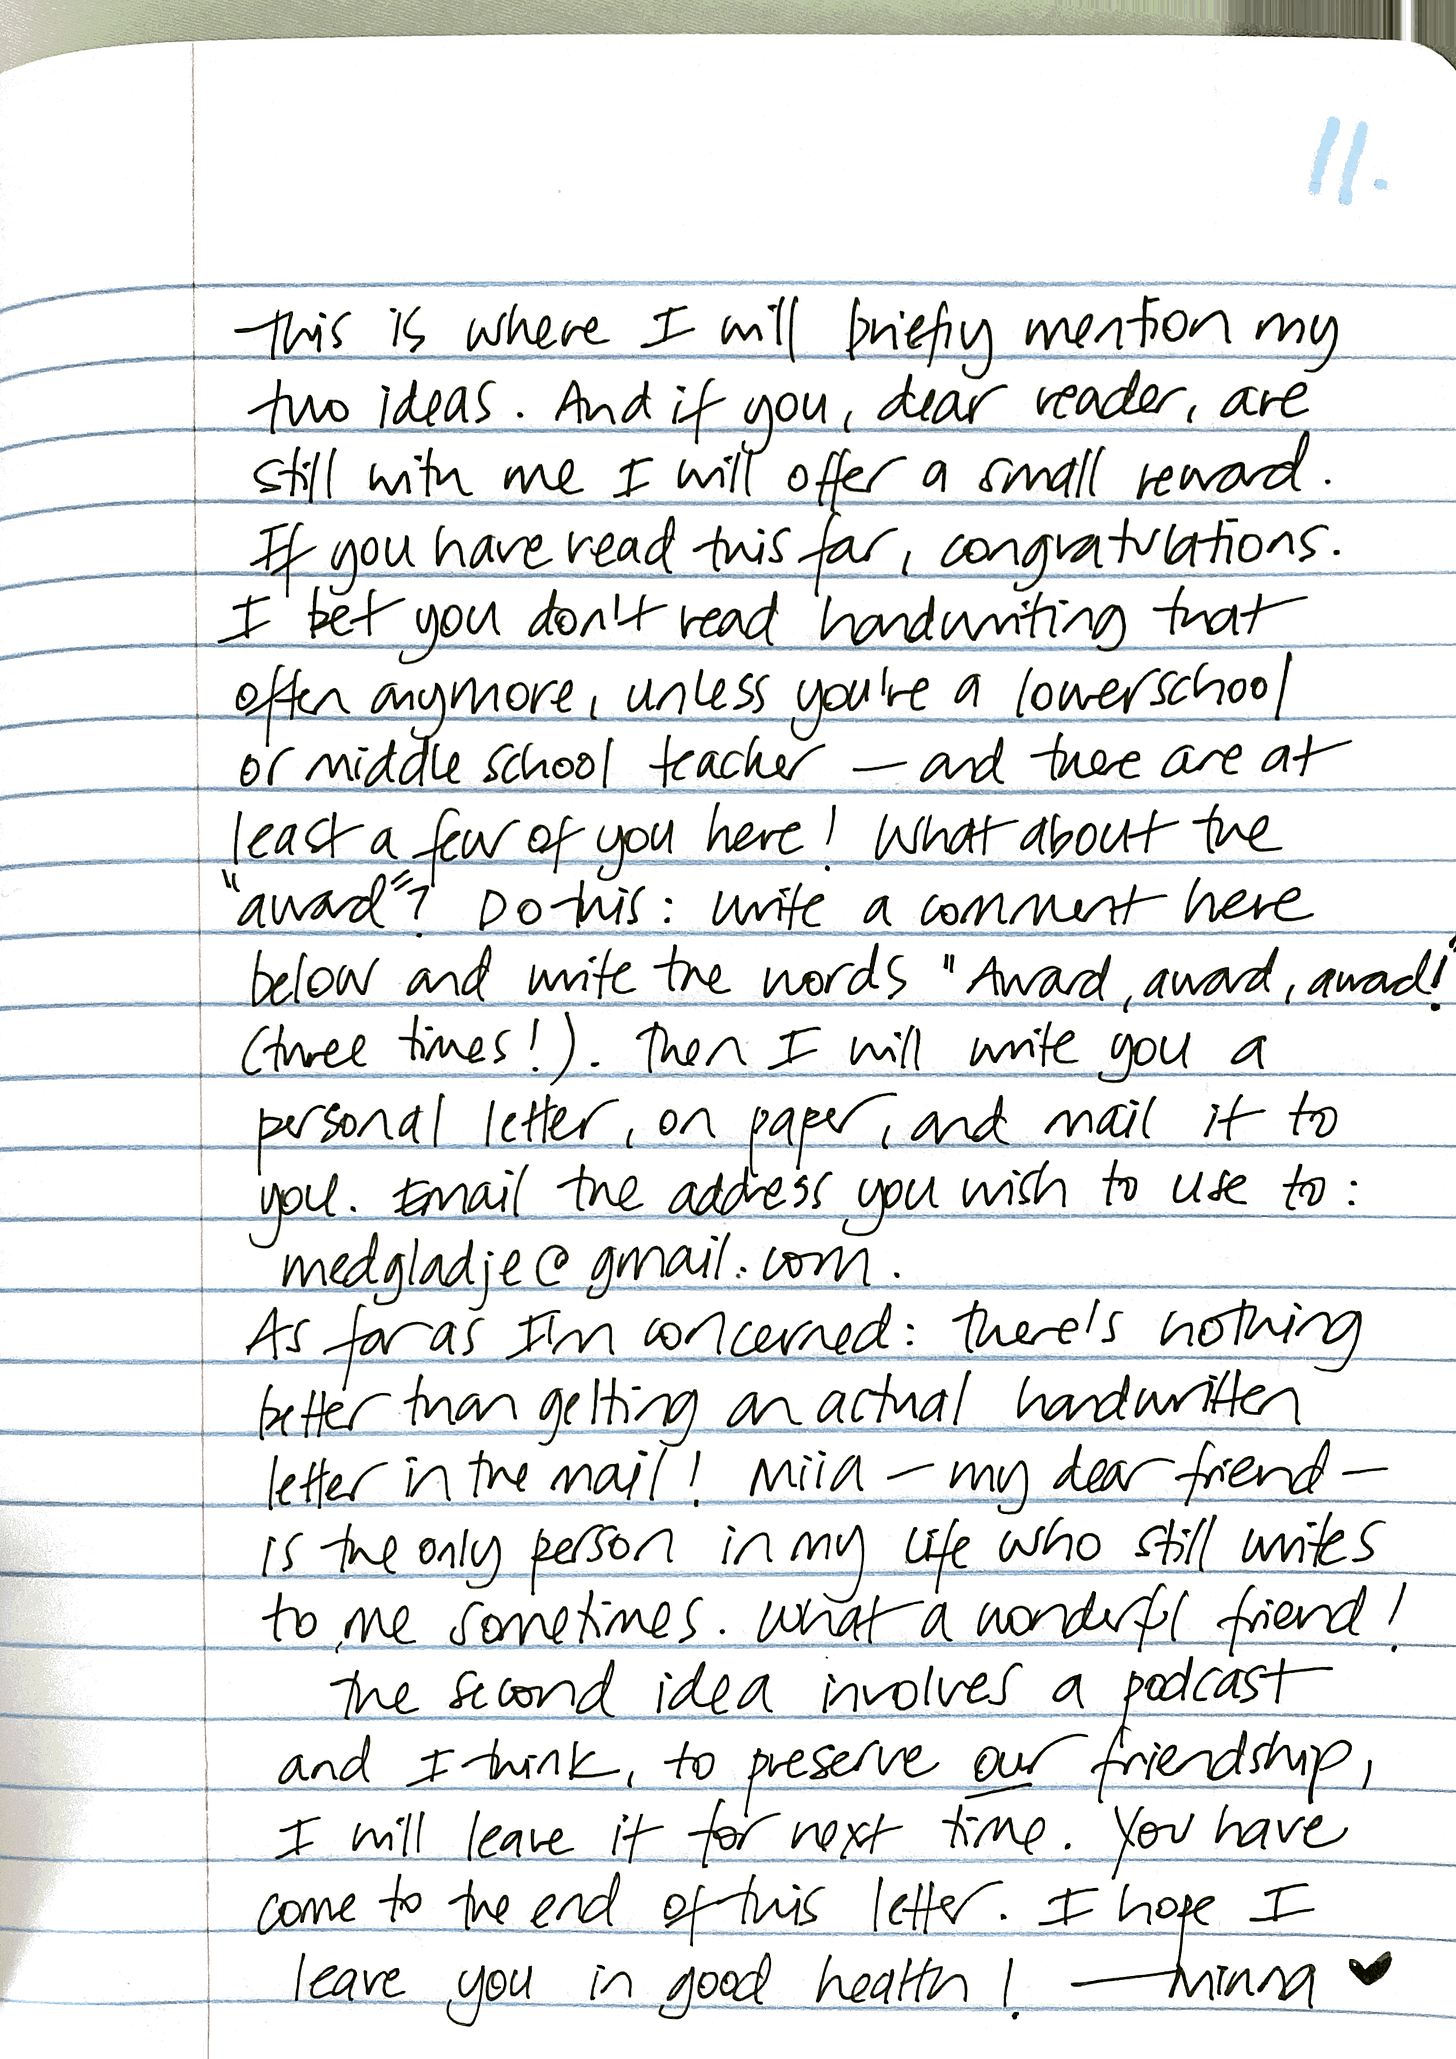 11.
This is where I will briefly mention my
two ideas. And if you, dear reader, are
still with me I will offer a small reward.
If you have read this far, congratulations.
I bet you don't read handwriting that
often anymore, unless you're a lowerschool
or middle school teacher — and there are at
least a few of you here! What about the
"award"? Do this: write a comment here
below and write the words "Award, award, award!"
(three times!). Then I will write you a
personal letter, on paper, and mail it to
you. Email the address you wish to use to:
medgladje@gmail.com.
As far as I'm concerned: there's nothing
better than getting an actual handwritten
letter in the mail! Miia — my dear friend —
is the only person in my life who still writes
to me sometimes. What a wonderful friend!
The second idea involves a podcast
and I think, to preserve our friendship,
I will leave it for next time. You have
come to the end of this letter. I hope I
leave you in good health! — Minna ♥